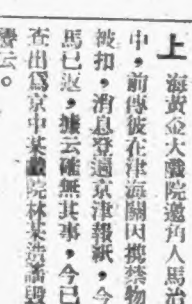 上海黃金大戲院邀角人馬治
中,前傳彼在津海關因攜禁物
被扣,消息登遍京津報紙,今
馬已返,據云確無其事,今已
查出爲京中某戲院林某造謠毀
譽云。